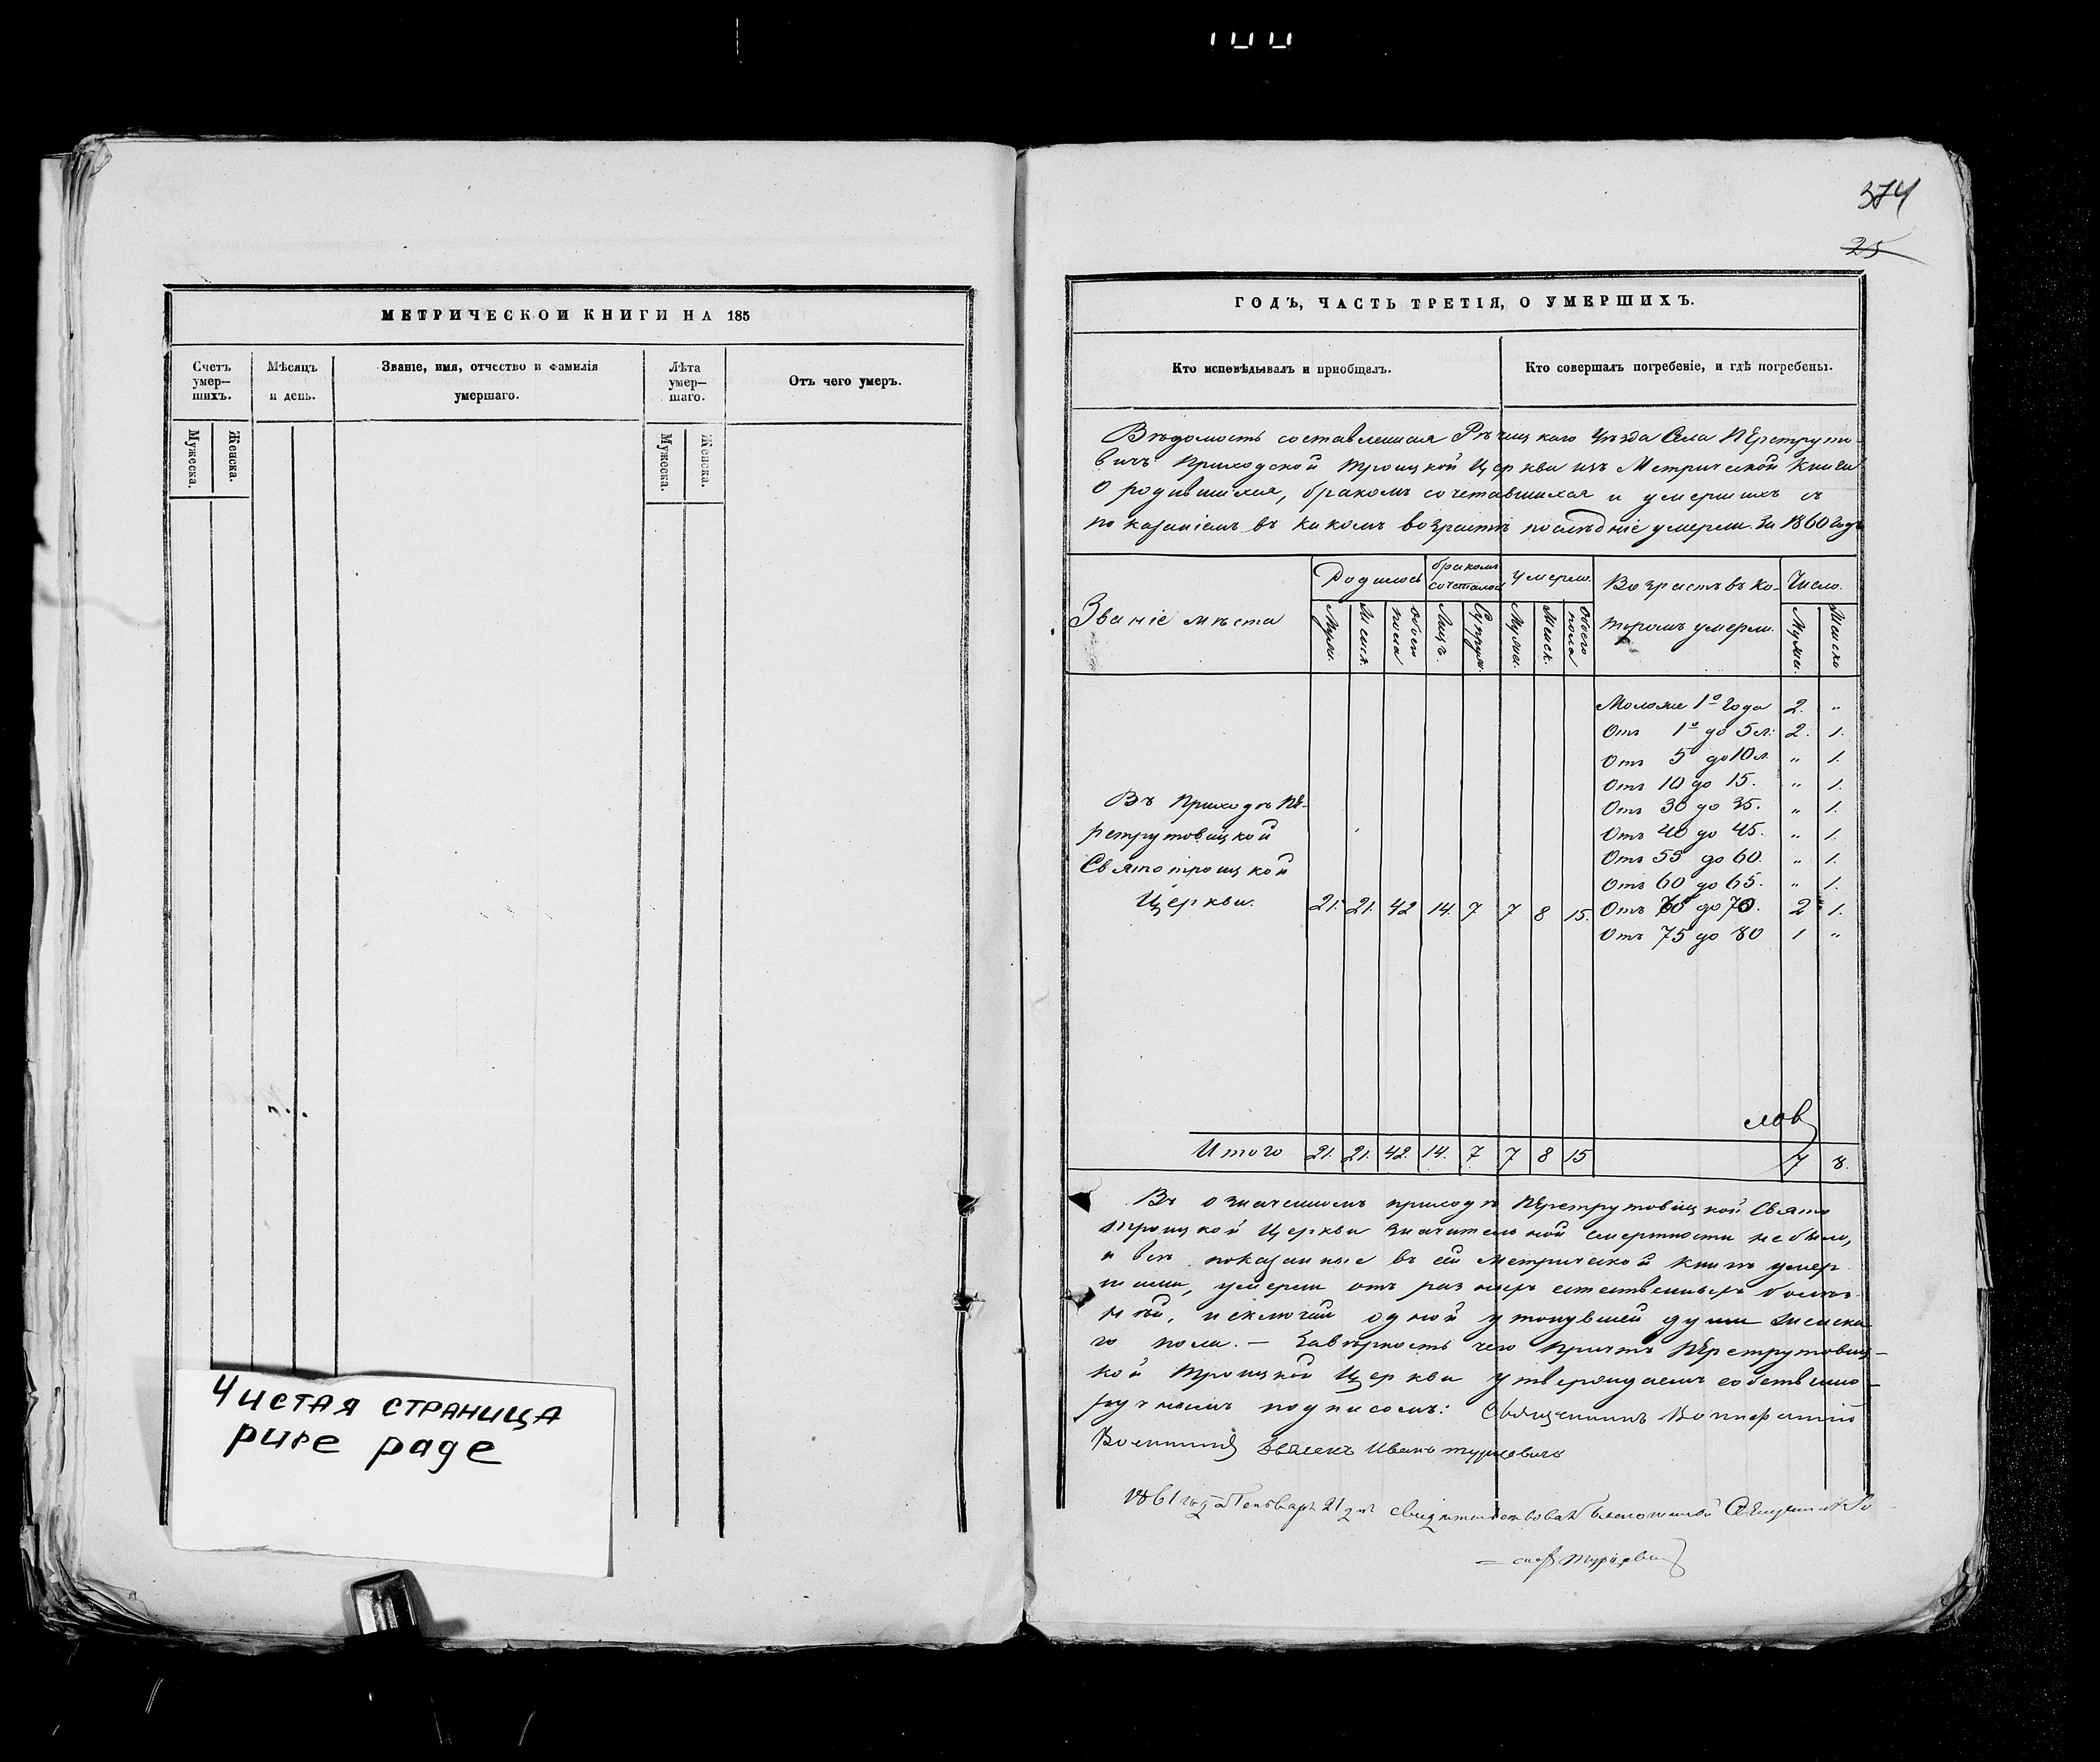 374
25
МЕТРИЧЕСКОЙ КНИГИ НА 185
Счетъ умер-шихъ.
Мужеска.
Женска.
Мѣсяцъ и день.
Званіе, имя, отчество и фамилія умершаго.
Лѣта умер-шаго.
Мужеска.
Женска.
Отъ чего умеръ.
Чистая страница
pure page
ГОДЪ, ЧАСТЬ ТРЕТІЯ, О УМЕРШИХЪ.
Кто исповѣдывалъ и пріобщалъ.
Кто совершалъ погребеніе, и гдѣ погребены.
Вѣдомость составленная Рѣчицкаго Уѣзда Села Перетруто-
вичъ Приходской Троицкой Церкви изъ Метрической Книги
О родившихся, бракомъ сочетавшихся и умершихъ съ
показаніемъ въ какомъ возрастѣ послѣдніе умерли. За 1860 годъ
Званіе мѣста
Родилось
Муж.
Женск.
обоего пола
бракомъ сочеталось
Лицъ.
Супруж.
умерло.
Мужес.
Женск.
обоего пола
Возрастъ въ ко-
торомъ умерли.
Число.
Мужес.
Женско
Моложе 1о года 2. "
Отъ 1о до 5 л: 2. 1.
Отъ 5 до 10 л. " 1.
Отъ 10 до 15. " 1.
Отъ 30 до 35. " 1.
Отъ 40 до 45. " 1.
Отъ 55 до 60. " 1.
Отъ 60 до 65. " 1.
Въ Приходѣ Пе-
ретрутовицкой
Святотроицкой
Церкви. 21. 21. 42 14. 7 7 8 15. Отъ до 70. 2 1.
Отъ 75 до 80 1 "
Итого 21. 21. 42. 14. 7 7 8 15 7 8.
Въ означенномъ приходѣ Перетрутовицкой Свято
троицкой Церкви значительной смертности не было,
и всѣ показанные въ сей Метрической книгѣ умер
шими, умерли отъ разныхъ естественныхъ болѣз-
ней, исключая одной утонувшей души женска
го пола. — Завѣрность чего Причтъ Перетрутовиц-
кой Троицкой Церкви утверждаемъ собственно-
ручнымъ подписомъ: Священникъ
Иванъ
1861 года Генваря 21 дня свидѣтельствовалъ Благочинный Священникъ